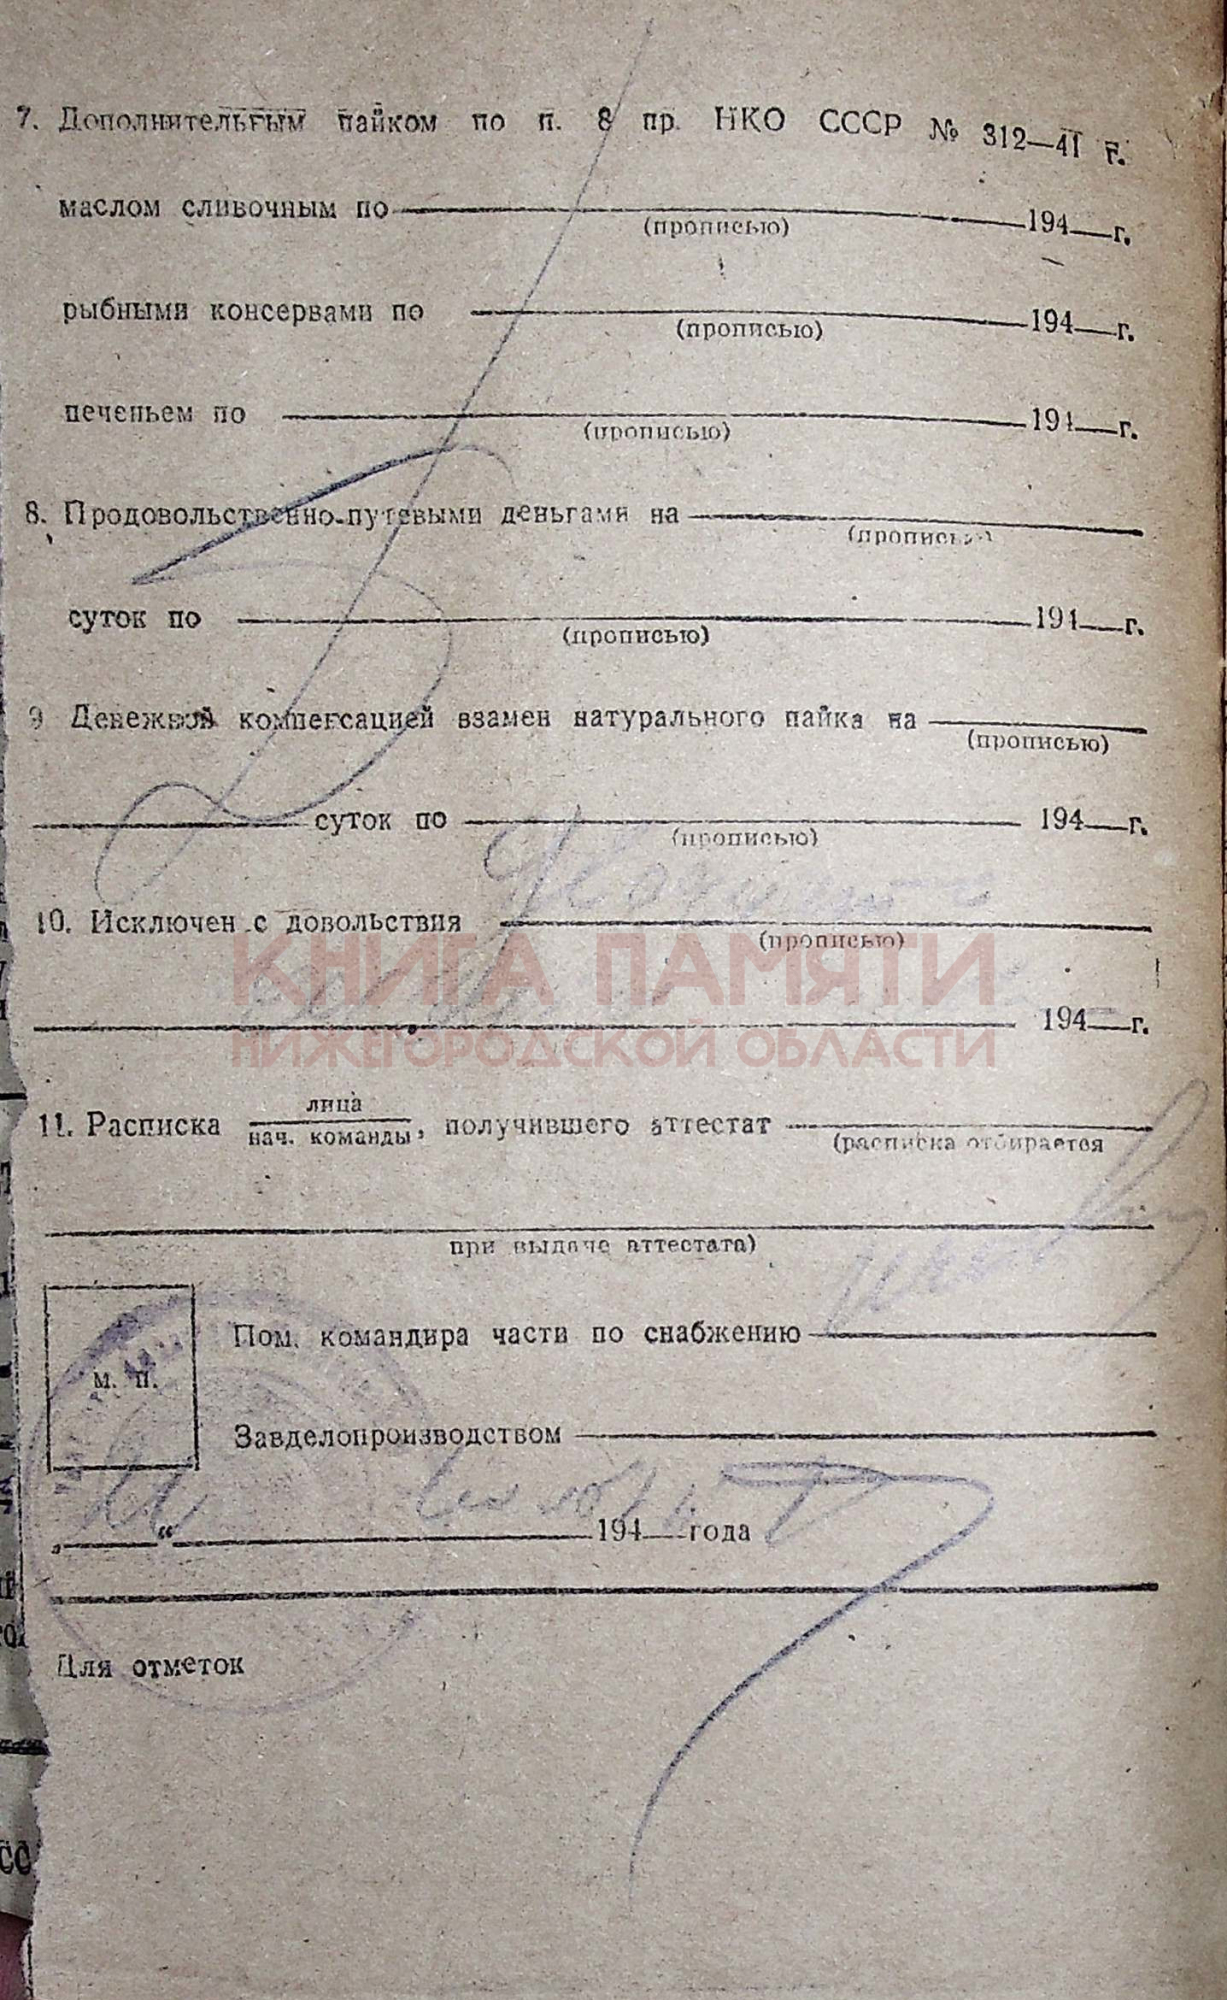 7. Дополнительным пайком по п. 8 пр. НКО СССР № 312—41 г.
маслом сливочным по 194 г.
(прописью)
рыбными консервами по 194 г.
(прописью)
печеньем по 194 г.
(прописью)
8. Продовольственно-путевыми деньгами на
(прописью)
суток по 194 г.
(прописью)
9 Денежной компенсацией взамен натурального пайка на
(прописью)
суток по 194 г.
(прописью)
10. Исключен с довольствия
(прописью)
КНИГА ПАМЯТИ
194 г.
НИЖЕГОРОДСКОЙ ОБЛАСТИ
лица
11. Расписка нач. команды, получившего аттестат
(расписка отбирается
при выдаче аттестата)
Пом. командира части по снабжению
м. п.
Завделопроизводством
„ “ 194 года
Для отметок